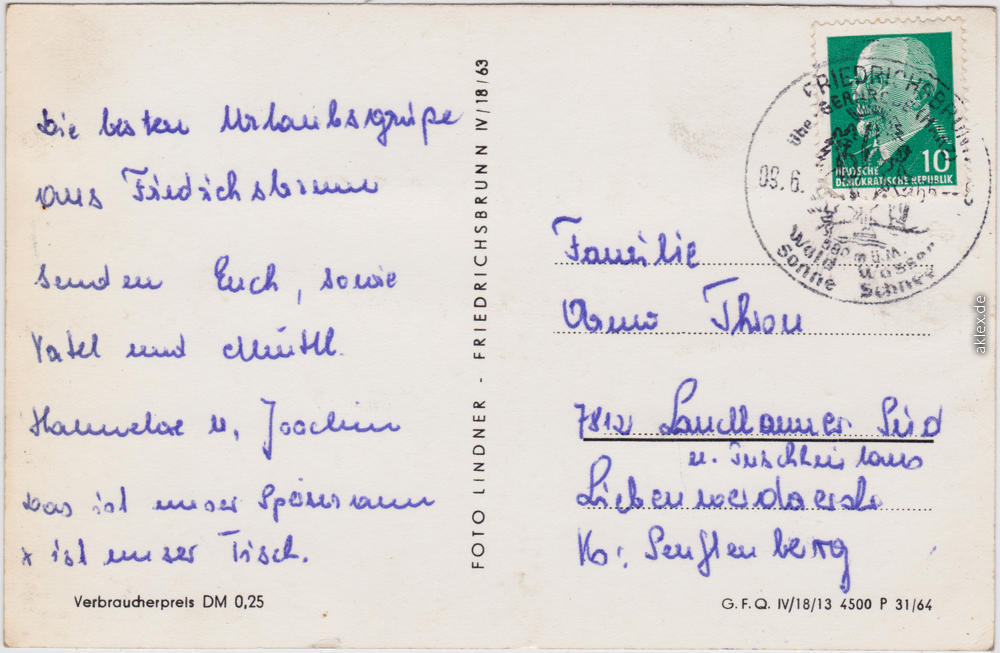 die besten Urlaubsgrüße
aus Friedrichsbrunn
senden Euch, sowie
Vatel und Muttl.
Hannelore u. Joachim
Das ist unser Speiseraum
x ist unser Tisch.
Verbraucherpreis DM 0,25
FOTO LINDNER - FRIEDRICHSBRUNN IV/18/63
FRIEDRICHSBRUNN
über GERNRODE (HARZ)
09.6.
580 m ü.M.
Wald Wasser
Sonne Schnee
10
DEUTSCHE
DEMOKRATISCHE REPUBLIK
Familie
Arno
7812 Lauchhammer Süd
u.
Liebenwerdaerstr
Kr: Senftenberg
G.F.Q. IV/18/13 4500 P 31/64
aklex.de